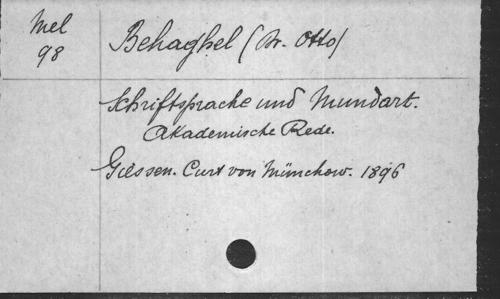 Mel
98
Behaghel (Dr. Otto)
Schriftsprache und Mundart.
Akademische Rede.
Giessen. Curt von Münchow. 1896